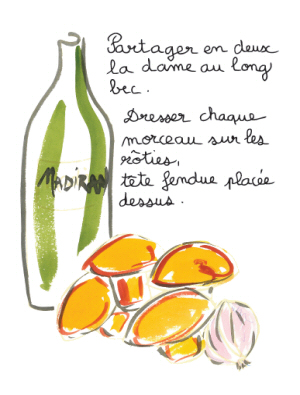 Partager en deux
la dame au long
bec.
Dresser chaque
morceau sur les
rôties,
tete fendue placée
dessus.
MADIRAN